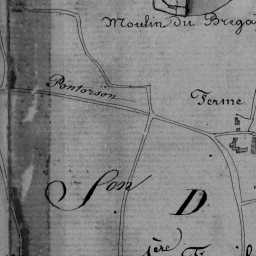 Moulin du Brega
Pontorson
Ferme
Son D
1ère